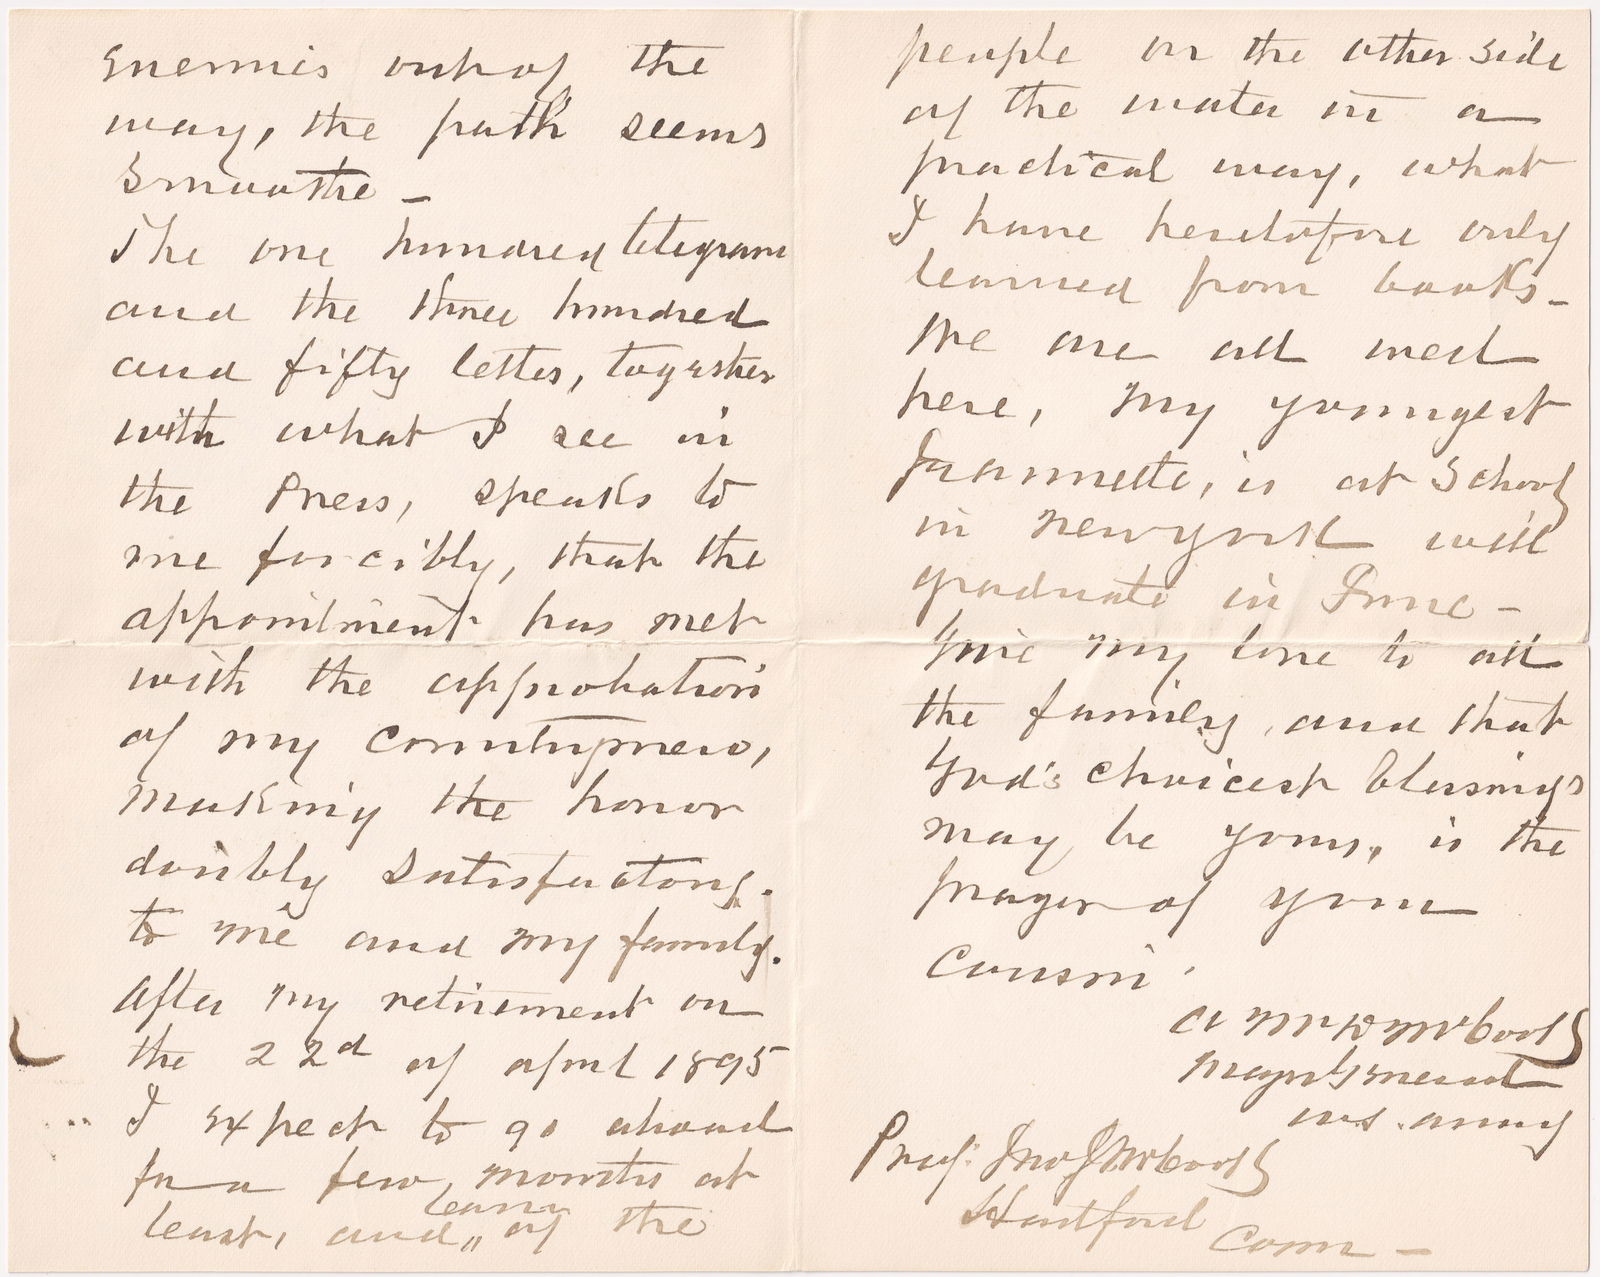 enemies out of the
way, the path seems
smoothe –
The one hundred telegrams
and the three hundred
and fifty letters, together
with what I see in
the Press, speaks to
me forcibly, that the
appointment has met
with the approbation
of my countrymen,
making the honor
doubly satisfactory.
to me and my family.
After my retirement on
the 22d of April 1895
I expect to go abroad
for a few months at
least, and learn of the
people on the other side
of the water in a
practical way, what
I have heretofore only
learned from books –
We are all well
here, my youngest
Jeannette, is at School
in New York will
graduate in June –
Give my love to all
the family, and that
God's choicest blessings
may be yours, is the
prayer of your
Cousin
A McD McCook
Major General
U.S. Army
Prof. Jno J McCook
Hartford
Conn –